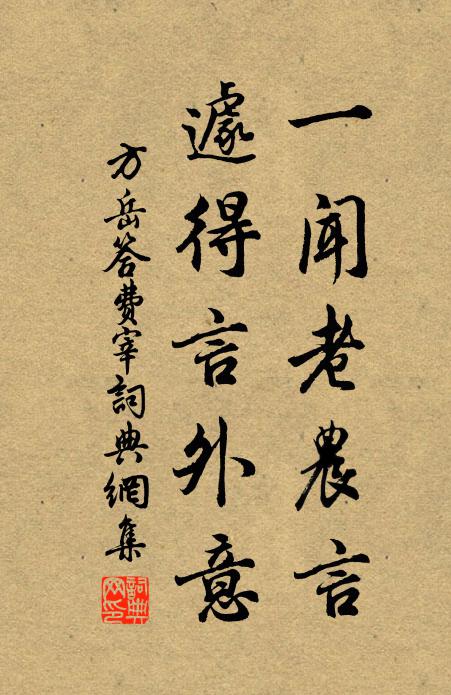 一聞老農言
遽得言外意
方岳答費宰詞典網集
詞典網印